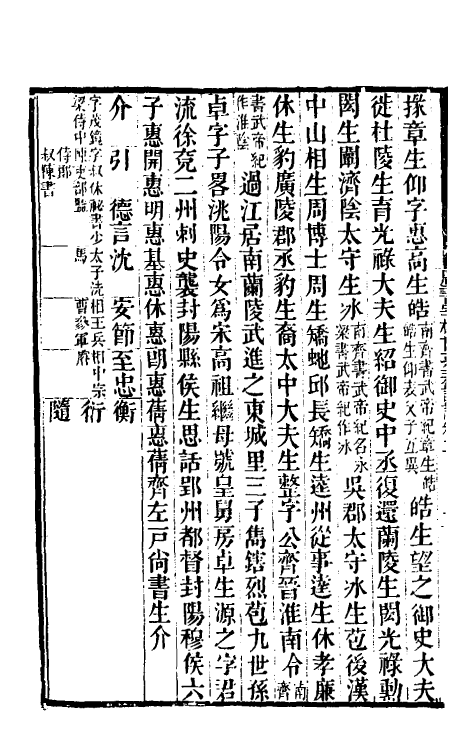 掾章生仰字惠高生皓南齊書武帝紀章生皓皓生仰表文子互異皓生望之御史大夫
徙杜陵生育光祿大夫生紹御史中丞復還蘭陵生閎光祿勳
閎生闡濟陰太守生冰南齊書武帝紀名永梁書武帝紀作冰吳郡太守冰生苞後漢
中山相生周博士周生矯虵邱長矯生逵州從事逵生休孝廉
休生豹廣陵郡丞豹生裔太中大夫生整字公齊晉淮南令南齊
書武帝紀作淮陰過江居南蘭陵武進之東城里三子雋鎋烈苞九世孫
卓字子略洮陽令女爲宋高祖繼母號皇舅房卓生源之字君
流徐兗二州刺史襲封陽縣侯生思話郢州都督封陽穆侯六
子惠開惠明惠基惠休惠朗惠蒨惠蒨齊左戸尚書生介
介 引 德言沈 安節至忠衡
字茂鏡字叔休祕書少太子洗相王兵相中宗 衍
梁侍中陳吏部監 馬 曹參軍府
侍郎 隨
叔陳書